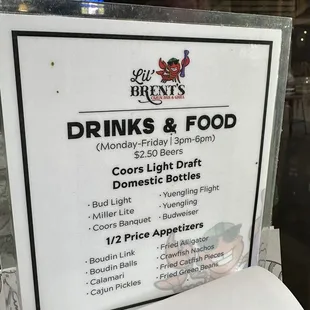 Lil'
BRENT'S
CAJUN BAR & GRILL
DRINKS & FOOD
(Monday-Friday | 3pm-6pm)
$2.50 Beers
Coors Light Draft
Domestic Bottles
· Bud Light
· Miller Lite
· Coors Banquet
· Yuengling Flight
· Yuengling
· Budweiser
1/2 Price Appetizers
· Boudin Link
· Boudin Balls
· Calamari
· Cajun Pickles
· Fried Alligator
· Crawfish Nachos
· Fried Catfish Pieces
· Fried Green Beans